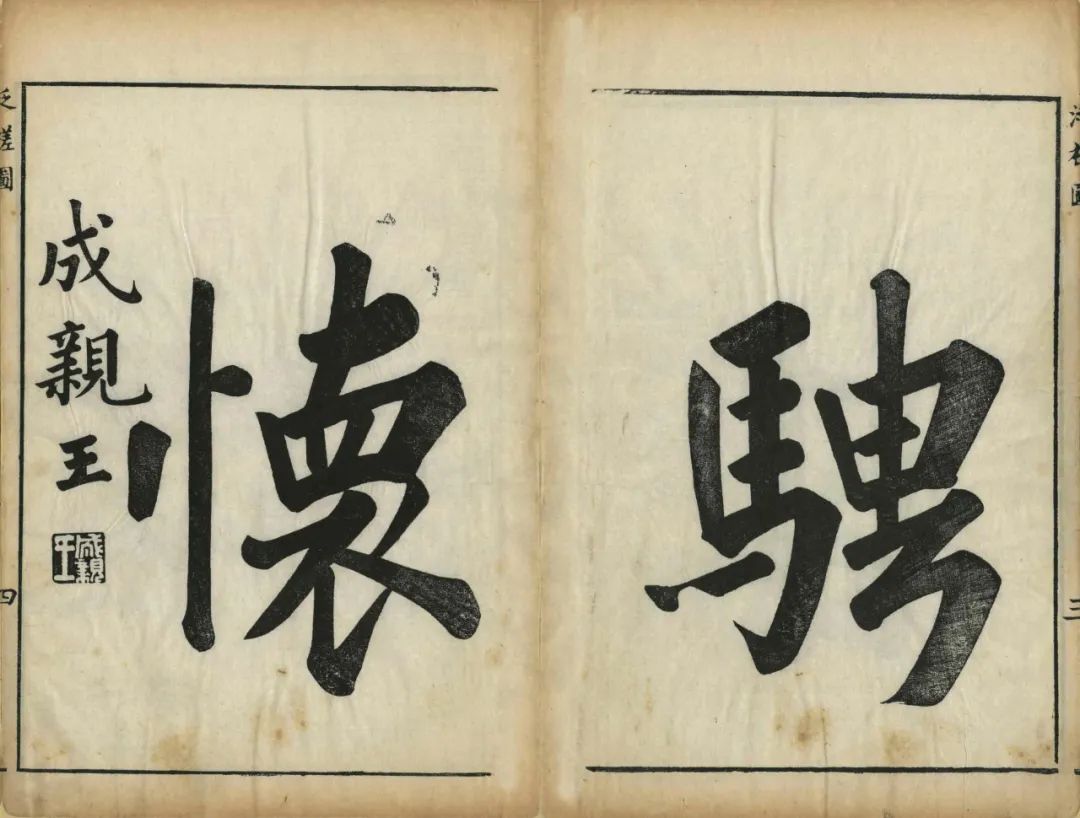 泛槎圖
三
騁
懷
成親王
成親王
泛槎圖
四